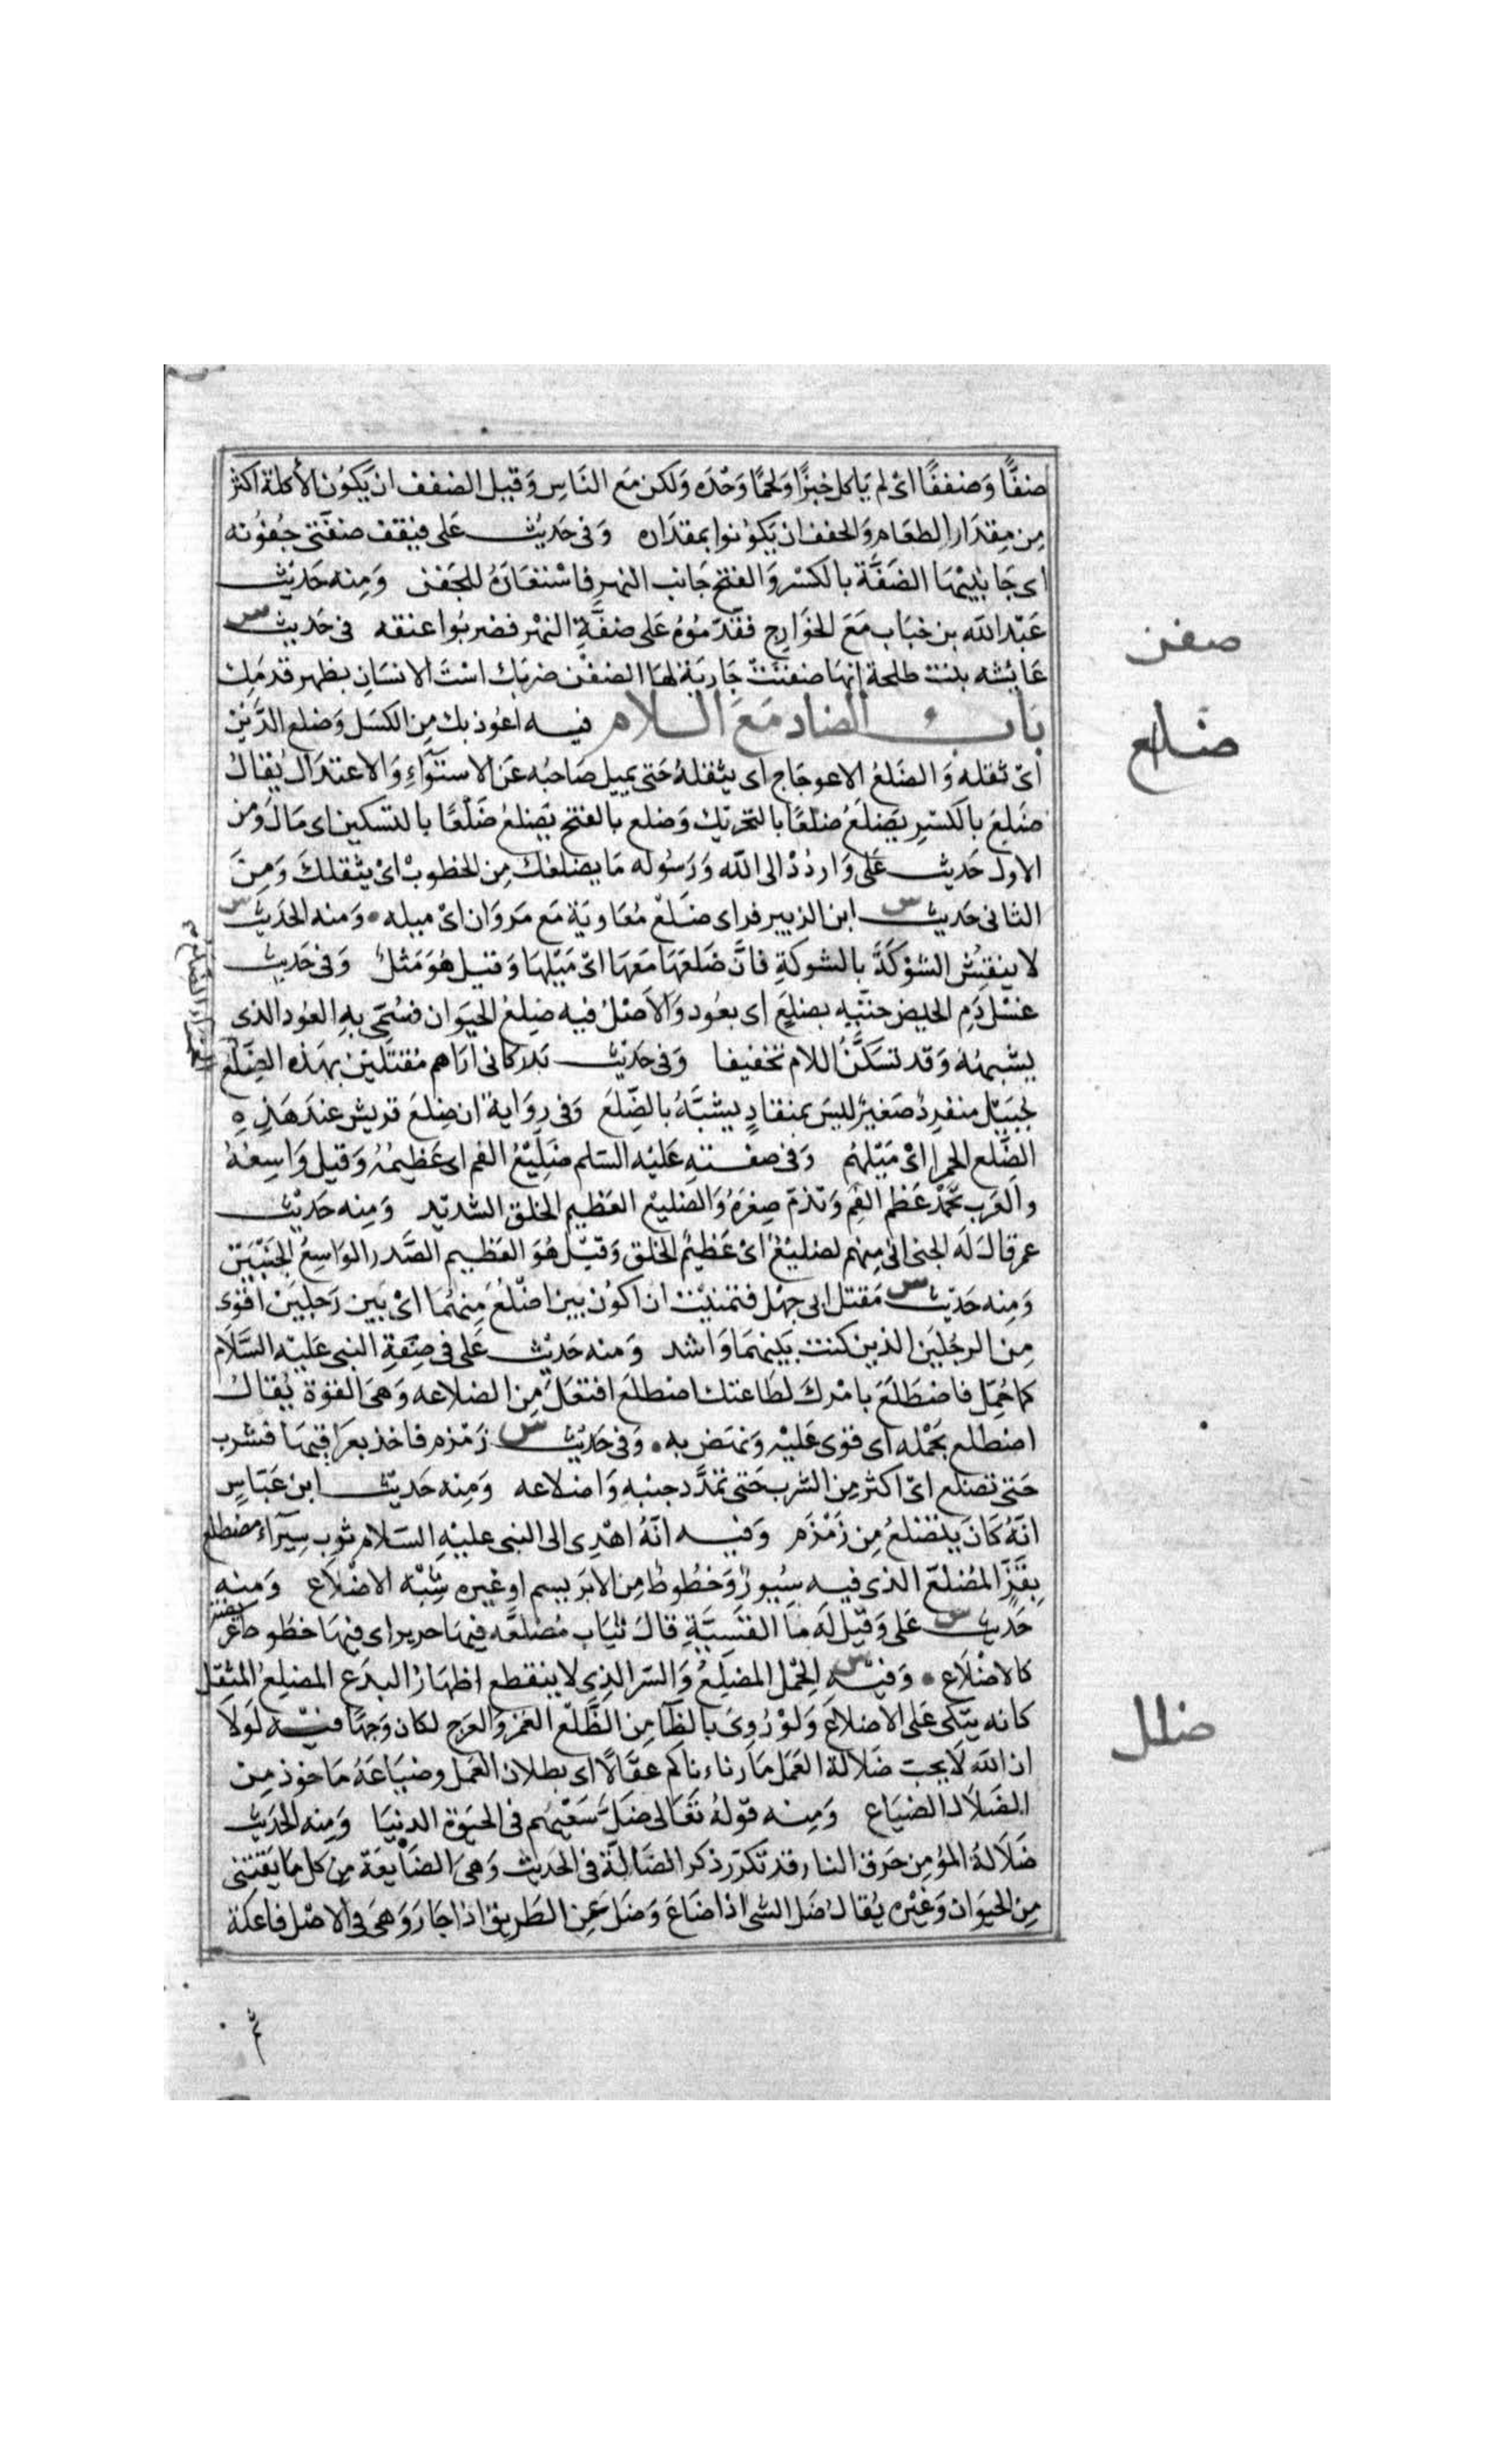 ضفًّا وَضففًا اىْ لم يَاكل خبزًا وَلحمًا وَحْدَه وَلكن مَع النَاسِ وَقيل الضفف ان يَكوُن الأكلة اكثر
مِن مِقدَار الطعَام وَالحفف ان يَكوُنوا بمقدَاره وَفى حَديْث عَلى فيَقف ضفّتى جُفوُنه
اى جَانِبيْهَا الضَفَّة بالكسْر وَالفتح جَانب النهر فاسْتعَارَهُ للجَفن وَمِنه حَديْث
عَبْد الله بن خبَاب مَعَ الخوَارج فقدّمُوُهُ عَلى ضفَّةِ النهْر فضربُوا عنقه فى حَديث س
عَايشه بنت طلحة انهَا ضفنَتْ جَاريَة لهَا الضفْن ضربك اسْتَ الانسَان بظهر قدمَك
بَاب الضاد مَعَ اللام فيه اعُوذ بك مِن الكسَل وَضلع الدَّيْن
اىْ ثقله وَالضَلعُ الاعوجَاج اى يثقلهُ حَتى يميل صَاحبُه عَن الاستوَآءِ وَالاعتدَال يُقال
ضَلِعَ بالكسْرِ يَضلَعُ ضلعًا بالتحرَيك وَضلع بالفتح يَضلعُ ضَلْعًا بالتسكين اى مَال وَمن
الاول حَديث عَلى وَارددْ الى الله وَرَسُوله مَا يضلعك مِن الخطوبْ اىْ يثقلكَ وَمِنَ
الثانى حَديث س ابن الزبير فراى ضَلْعَ مُعَاويَة مَع مَروَان اىْ ميله وَمنه الحَديث س
لا ينقشْ الشوْكَةُ بالشوكةِ فانَّ ضَلعَهَا مَعَهَا اىْ مَيْلهَا وَقيل هُوَ مَثلٌ وَفى حَديث
غسْل دَمِ الحيض حتّيه بضلَعٍ اى بعُود وَالاَصْلُ فيه ضِلعُ الحيَوَان فسُمّىَ بهِ العُود الذى
يشْبههُ وَقد تسَكَّنُ اللام تخفيفا وَفى حَديْث بَدر كانى ارَاهم مُقتلَّين بهَذه الضِلَع
لجبَيْل منفردٌ صَغيرٌ ليسَ بمنقادٍ يشبَّهُ بالضِلَعَ وَفى رِوَاية ان ضِلعَ قريش عندَ هَذِه
الضّلع الحمرا اىْ مَيْلهُم وَفى صفتهِ عَليْه السّلم ضَلِيْعُ الفم اى عَظيْمهُ وَقيل وَاسِعهُ
والعَرَب تَحْمَدُ عَظمَ الفِم وَتذمّ صِغرَهُ وَالضليعُ العَظيم الخلق الشديْد وَمِنه حَديْث
عمر قالَ لَه الجنى انى مِنهم لضليْعُ اىْ عَظيمُ الخلق وَقيْل هُوَ العَظيم الصَّدر الوَاسِعُ الجَنبَيْن
وَمِنه حَديْث س مَقتل ابى جهْل فتمنيْت ان اكوُن بين اضْلَعَ مِنهُمَا اىْ بَين رَجليَن اقوَى
مِن الرجُلَين الذين كنت بَينهمَا وَاشد وَمنه حَديْث عَلى فى صِفةِ النبى عَليْه السَّلاَم
كما حُمّل فاضطَلَعَ بامْركَ لطَاعتك اضطلَعَ افتعَلَ مِن الضلاعه وَهىَ القوّة يُقال
اضطلع بحَمْله اى قوى عَليْه وَنهَض به وَفى حَديْث س زَمْزم فاخذ بعرَاقيهَا فشرب
حَتى تضلع اىْ اكثر مِن الشرب حَتى تمَدّدَ جنبه وَاضلاعه وَمِنه حَديْث ابن عَبَّاسٍ
انّهُ كانَ يتضَلعُ مِن زَمْزَم وَفيه انّهُ اهْدِى الى النبى عليْهِ السّلام ثوب سِيَرَاء مضطلع
بِقَزّ المُضَلعّ الذى فيه سُيُورٌ وَخُطُوطُ مِن الابَريسم او غيره شِبْه الاضْلاَع وَمنه
حَديث س عَلى وَقيْل لَه مَا القَسّيَّةِ قالَ ثيَاب مُضلعَّه فيهَا حرير اى فيهَا خطوط
كالاضْلاَع وَفيْه س الحْمل المضلِعُ وَالشر الذِى لا ينقطع اظهَارُ البدَع المضلِعُ المثقل
كانه يتّكى عَلى الاضلاعَ وَلوْ رُوِىَ بالظا مِن الظَلْع الغمز وَالعَرج لكان وَجهًا فيْه لَولاَ
ان الله لاَ يحب ضَلالة العَمَل مَا رزاناكم عقالاً اى بطلان العَمل وضيَاعَهُ مَاخوذ مِن
الضلاَل الضيَاع وَمِنه قوْلهُ تعَالى ضَلَّ سَعْيهُم فى الحيَوة الدنيَا وَمِنه الحَديث
ضَلاَلةُ المؤمِن حَرق النار قد تكرّر ذكر الضَالّة فى الحَديث وَهىَ الضَايعَة مِن كل مَا يَقتنى
مِن الحيوَان وَغيْره يُقال ضَل الشى اذا ضَاعَ وَضَل عَن الطَريق اذا جَار وَهىَ فى الاصْل فاعلة
ضفن
ضلع
ضلل